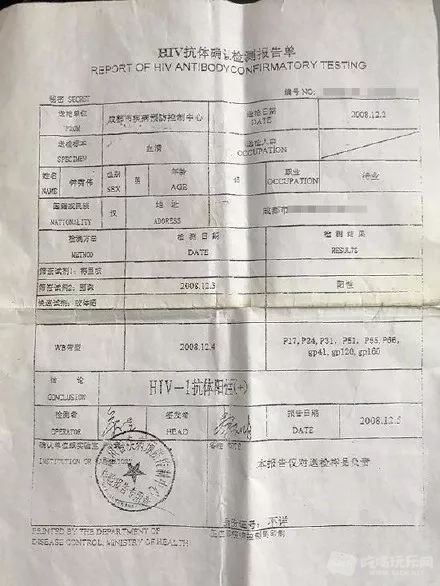 HIV抗体确认检测报告单
REPORT OF HIV ANTIBODY CONFIRMATORY TESTING
秘密 SECRET 编号 NO:
送检单位 成都市疾病预防控制中心 送检日期 2008.12.2
FROM DATE
送检标本 血清 送检人口
SPECIMEN OCCUPATION
姓名 性别 男 年龄 职业 待业
NAME SEX AGE OCCUPATION
国籍或民族 汉 地址 成都市
NATIONALITY ADDRESS
检测方法 检测日期 检测结果
METHOD DATE RESULTS
筛查试剂1:
筛查试剂2: 2008.12.3 阳性
快速试剂:
WB带型 2008.12.4 P17, P24, P31, P51, P55, P66,
gp41, gp120, gp160
结论 HIV-1抗体阳性(+)
CONCLUSION
检测者 签发者 报告日期 2008.12.5
OPERATOR HEAD DATE
确认单位或实验室 备注 NOTE
INSTITUTION OR 本报告仅对送检样品负责
身份证号: 不详
PRINTED BY THE DEPARTMENT OF
DISEASE CONTROL, MINISTRY OF HEALTH